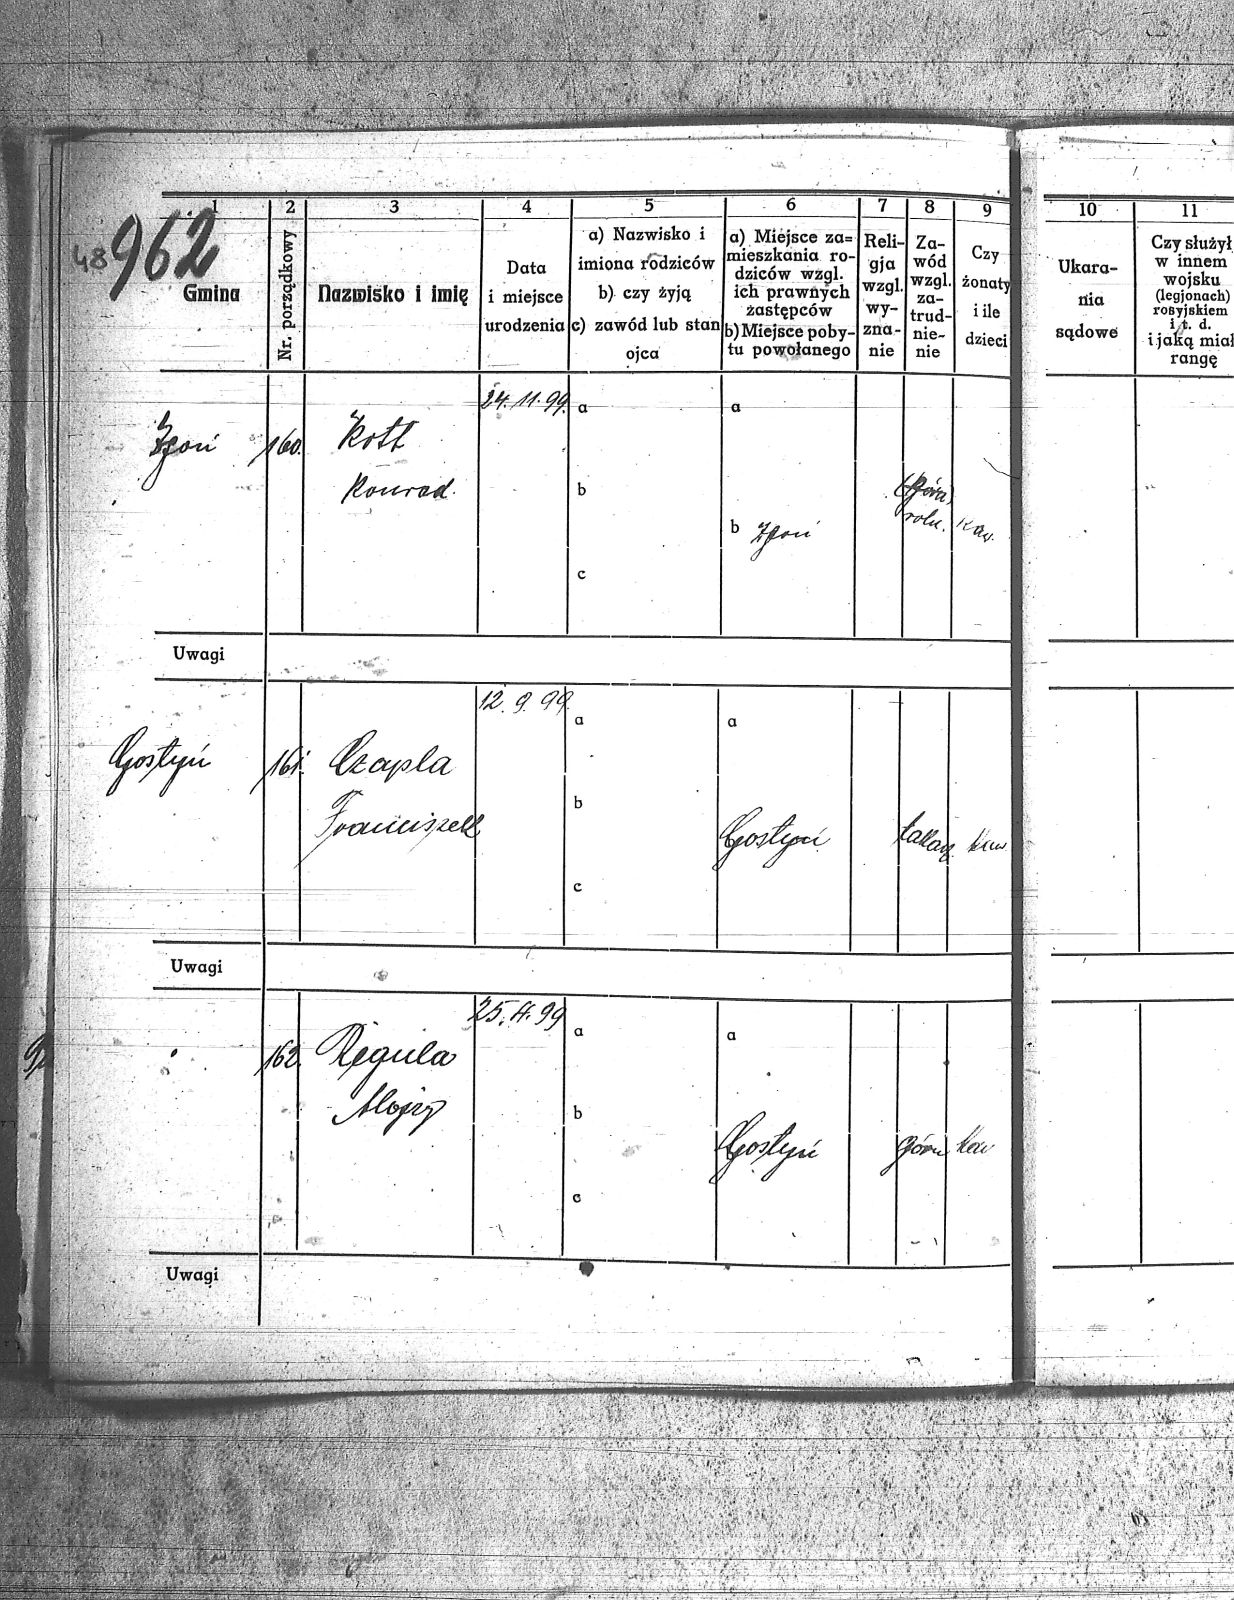 48
962
1
2
3
4
5
6
7
8
9
10
11
Gmina
Nr. porządkowy
Nazwisko i imię
Data
i miejsce
urodzenia
a) Nazwisko i
imiona rodziców
b) czy żyją
c) zawód lub stan
ojca
a) Miejsce za=
mieszkania ro-
dziców wzgl.
ich prawnych
zastępców
b) Miejsce poby-
tu powołanego
Reli-
gja
wzgl.
wy-
zna-
nie
Za-
wód
wzgl.
za-
trud-
nie-
nie
Czy
żonaty
i ile
dzieci
Ukara-
nia
sądowe
Czy służył
w innem
wojsku
(legjonach)
rosyjskiem
i t. d.
i jaką miał
rangę
Zgoń
160.
Kott
Konrad.
24.11.99.
a
b
c
a
b Zgoń
(Góra)
roln.
Kaw.
Uwagi
Gostyń
161.
Czapla
Franciszek
12.9.99.
a
b
c
a
Gostyń
Kaw
Uwagi
162.
Regula
Alojzy
25.4.99
a
b
c
a
Gostyń
górn
Kaw
Uwagi